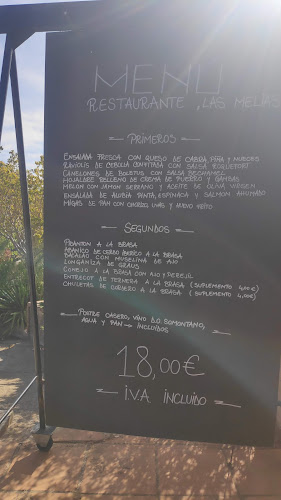 MENÚ
RESTAURANTE "LAS MELIAS
— PRIMEROS —
ENSALADA FRESCA CON QUESO DE CABRA, PIÑA Y NUECES
RAVIOLIS DE CEBOLLA CONFITADA CON SALSA ROQUEFORT
CANELONES DE BOLETUS CON SALSA BECHAMEL
HOJALDRE RELLENO DE CREMA DE PUERRO Y GAMBAS
MELON CON JAMON SERRANO Y ACEITE DE OLIVA VIRGEN
ENSALADA DE ALUBIA PINTA, ESPINACA Y SALMON AHUMADO
MIGAS DE PAN CON CHORIZO, UVAS Y HUEVO FRITO
— SEGUNDOS —
A LA BRASA
ABANICO DE CERDO IBERICO A LA BRASA
BACALAO CON MUSELINA DE AJO
LONGANIZA DE GRAUS
CONEJO A LA BRASA CON AJO Y PEREJIL
ENTRECOT DE TERNERA A LA BRASA (SUPLEMENTO 4,00€)
CHULETAS DE CORDERO A LA BRASA (SUPLEMENTO 4,00€)
POSTRE CASERO, VINO D.O. SOMONTANO,
AGUA Y PAN → INCLUIDOS
18,00€
— I.V.A. INCLUIDO —